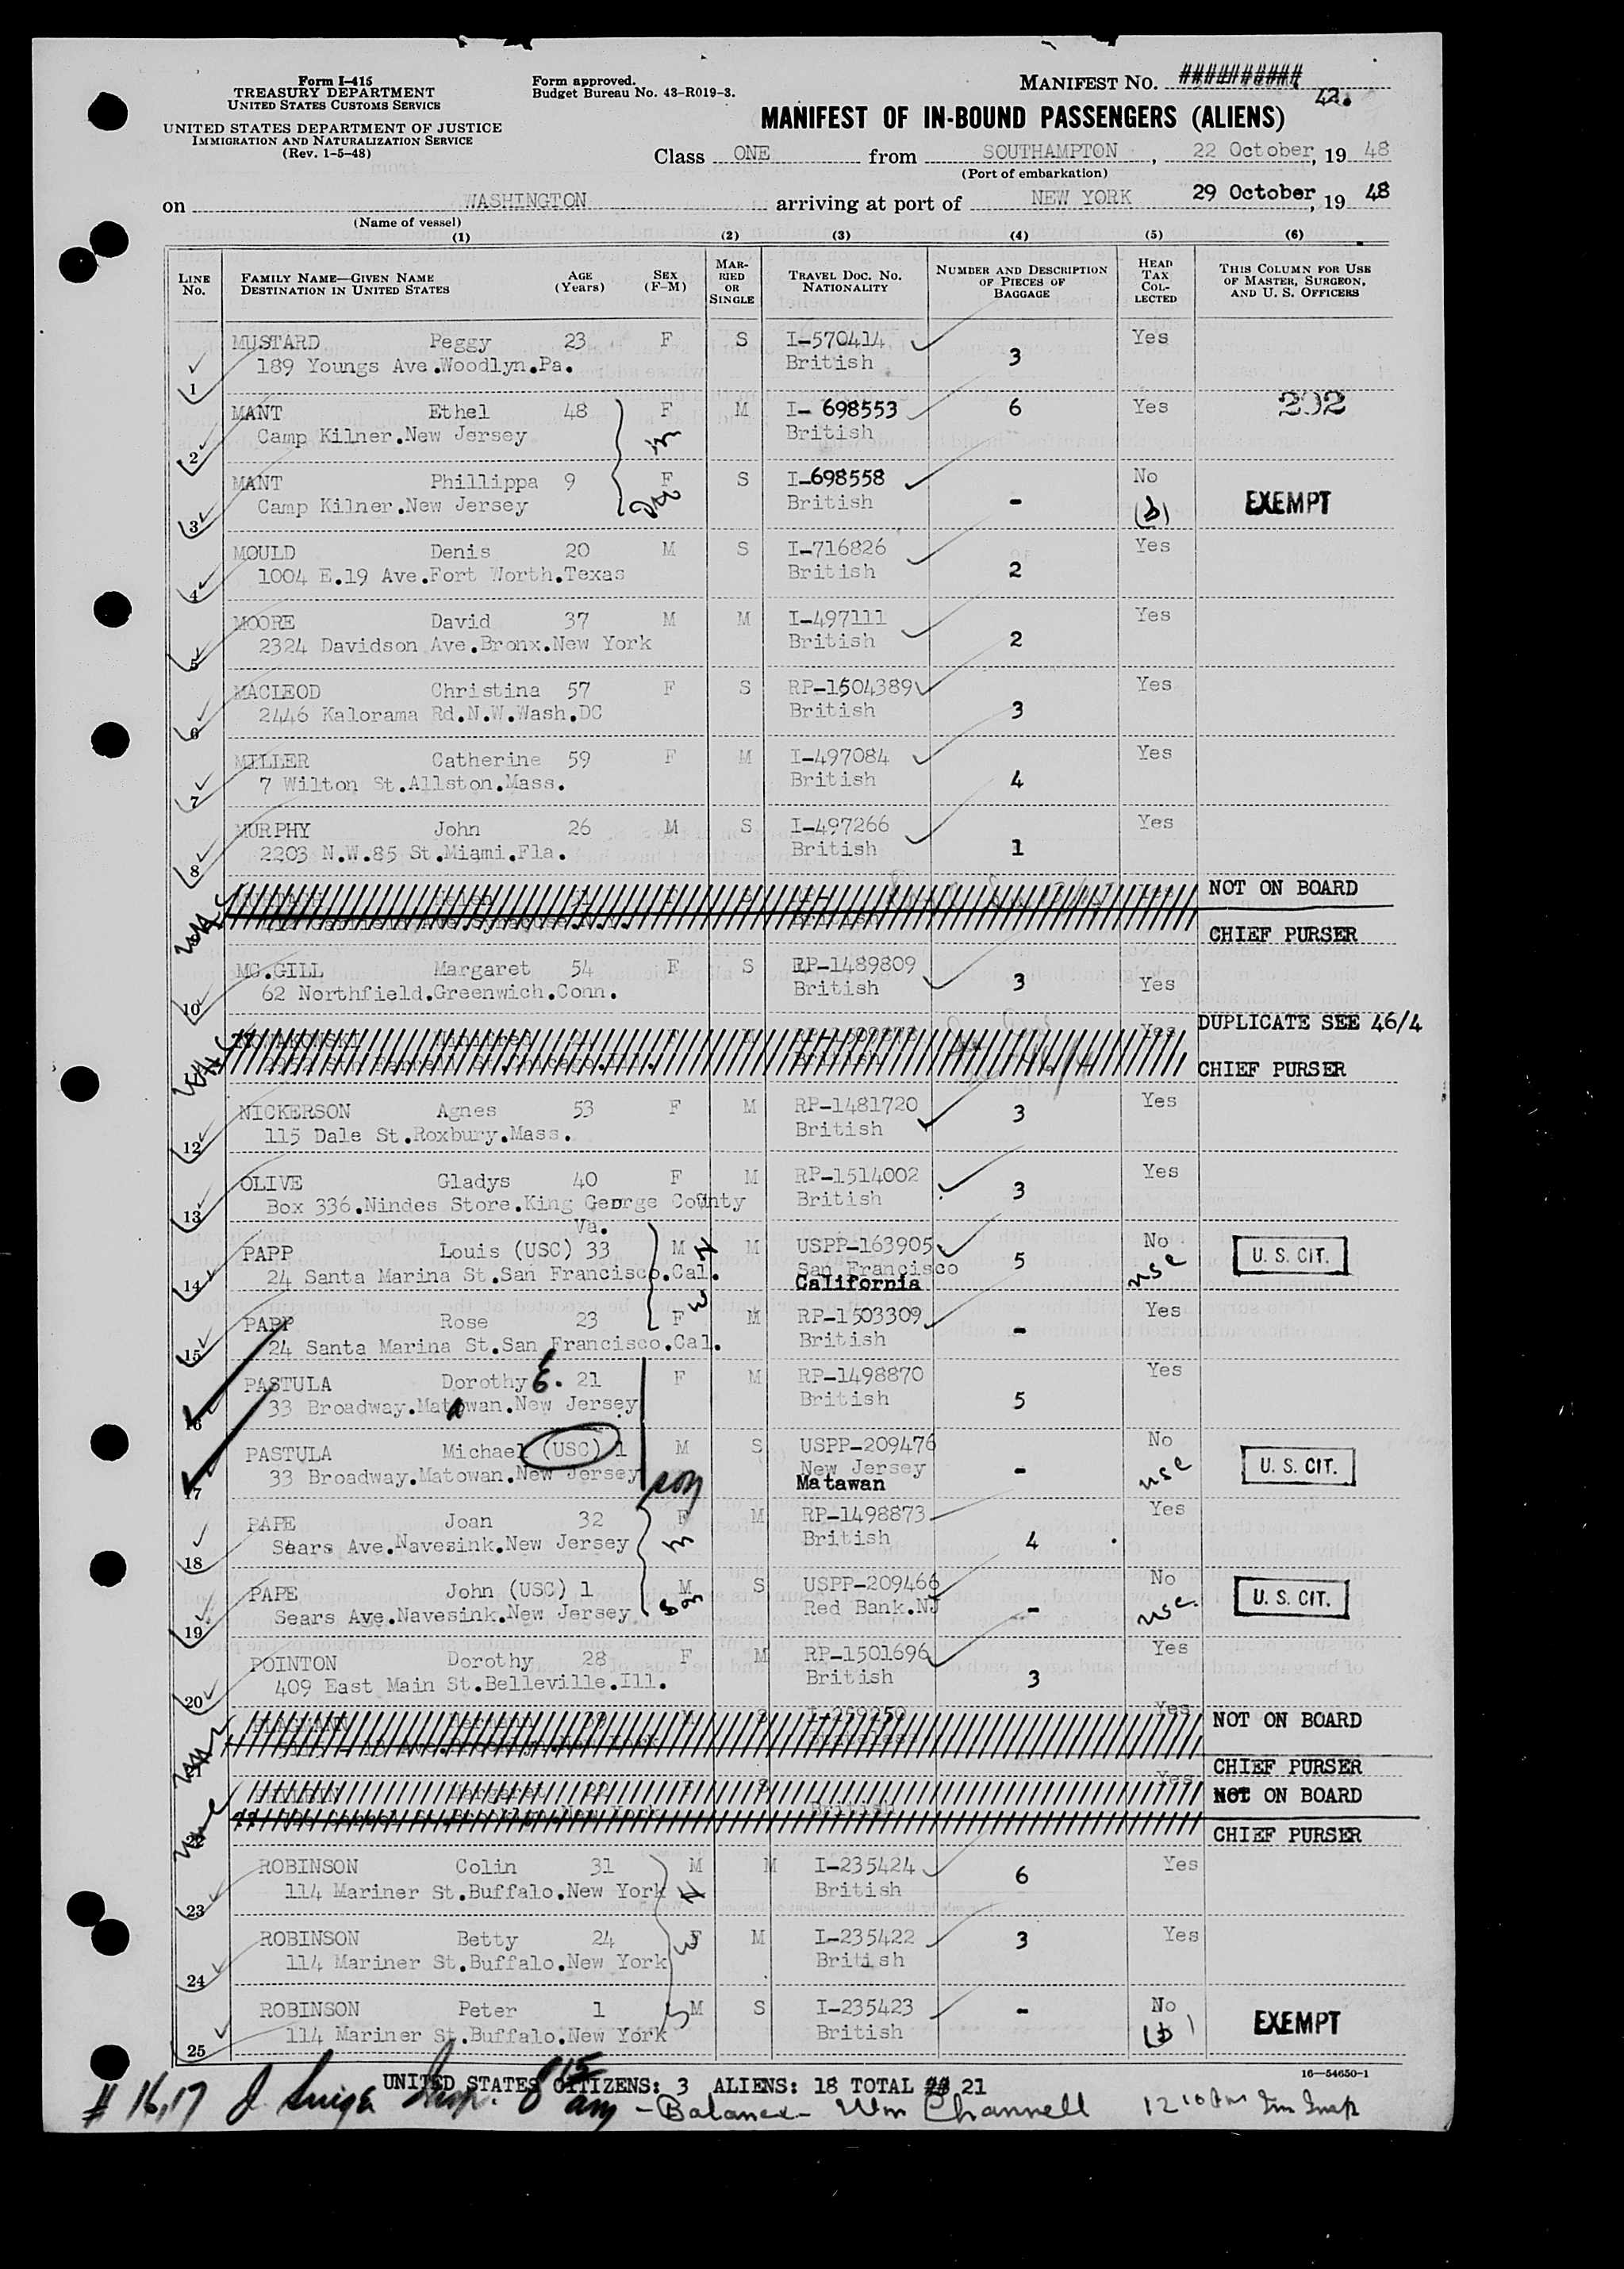 Form I-415
TREASURY DEPARTMENT
UNITED STATES CUSTOMS SERVICE
UNITED STATES DEPARTMENT OF JUSTICE
IMMIGRATION AND NATURALIZATION SERVICE
(Rev. 1-5-48)
Form approved.
Budget Bureau No. 43-R019-3.
MANIFEST NO. ##########
42.
MANIFEST OF IN-BOUND PASSENGERS (ALIENS)
Class ONE from SOUTHAMPTON, 22 October, 19 48
(Port of embarkation)
on WASHINGTON arriving at port of NEW YORK 29 October, 19 48
(Name of vessel)
(1) (2) (3) (4) (5) (6)
LINE NO. FAMILY NAME—GIVEN NAME DESTINATION IN UNITED STATES AGE (Years) SEX (F-M) MARRIED OR SINGLE TRAVEL DOC. NO. NATIONALITY NUMBER AND DESCRIPTION OF PIECES OF BAGGAGE HEAD TAX COLLECTED THIS COLUMN FOR USE OF MASTER, SURGEON, AND U. S. OFFICERS
MUSTARD Peggy 23 F S I-570414 3 Yes
1 189 Youngs Ave.Woodlyn.Pa. British
MANT Ethel 48 F M I- 698553 6 Yes 292
2 Camp Kilner.New Jersey British
MANT Phillippa 9 F S I-698558 - No
3 Camp Kilner.New Jersey British (b) EXEMPT
MOULD Denis 20 M S I-716826 2 Yes
4 1004 E.19 Ave.Fort Worth.Texas British
MOORE David 37 M M I-497111 2 Yes
5 2324 Davidson Ave.Bronx.New York British
MACLEOD Christina 57 F S RP-1504389 3 Yes
6 2446 Kalorama Rd.N.W.Wash.DC British
MILLER Catherine 59 F M I-497084 4 Yes
7 7 Wilton St.Allston.Mass. British
MURPHY John 26 M S I-497266 1 Yes
8 2203 N.W.85 St.Miami.Fla. British
Helen S Yes NOT ON BOARD
British CHIEF PURSER
MC.GILL Margaret 54 F S RP-1489809 3 Yes
10 62 Northfield.Greenwich.Conn. British
M RP-1509878 Yes DUPLICATE SEE 46/4
British CHIEF PURSER
NICKERSON Agnes 53 F M RP-1481720 3 Yes
12 115 Dale St.Roxbury.Mass. British
OLIVE Gladys 40 F M RP-1514002 3 Yes
13 Box 336.Nindes Store.King George County British
Va.
PAPP Louis (USC) 33 M H M USPP-163905 5 No U. S. CIT.
14 24 Santa Marina St.San Francisco.Cal. San Francisco usc
California
PAPP Rose 23 F W M RP-1503309 - Yes
15 24 Santa Marina St.San Francisco.Cal. British
PASTULA Dorothy E. 21 F M RP-1498870 5 Yes
16 33 Broadway.Matawan.New Jersey British
PASTULA Michael (USC) 1 M S USPP-209476 - No U. S. CIT.
17 33 Broadway.Matowan.New Jersey son New Jersey usc
Matawan
PAPE Joan 32 F M RP-1498873 4 Yes
18 Sears Ave.Navesink.New Jersey m British
PAPE John (USC) 1 M S USPP-209466 - No U. S. CIT.
19 Sears Ave.Navesink.New Jersey son Red Bank.NJ usc
POINTON Dorothy 28 F M RP-1501696 3 Yes
20 409 East Main St.Belleville.Ill. British
Hermann S I-259250 Yes NOT ON BOARD
21 Stateless CHIEF PURSER
Margaret S Yes NOT ON BOARD
Brooklyn.New York British CHIEF PURSER
ROBINSON Colin 31 M H M I-235424 6 Yes
23 114 Mariner St.Buffalo.New York British
ROBINSON Betty 24 F W M I-235422 3 Yes
24 114 Mariner St.Buffalo.New York British
ROBINSON Peter 1 M S S I-235423 - No
25 114 Mariner St.Buffalo.New York British (b) EXEMPT
16—54650-1
UNITED STATES CITIZENS: 3 ALIENS: 18 TOTAL 21
# 16,17 Insp. 8 15 am - Balance - Wm Channell 12 10 Am Im Insp